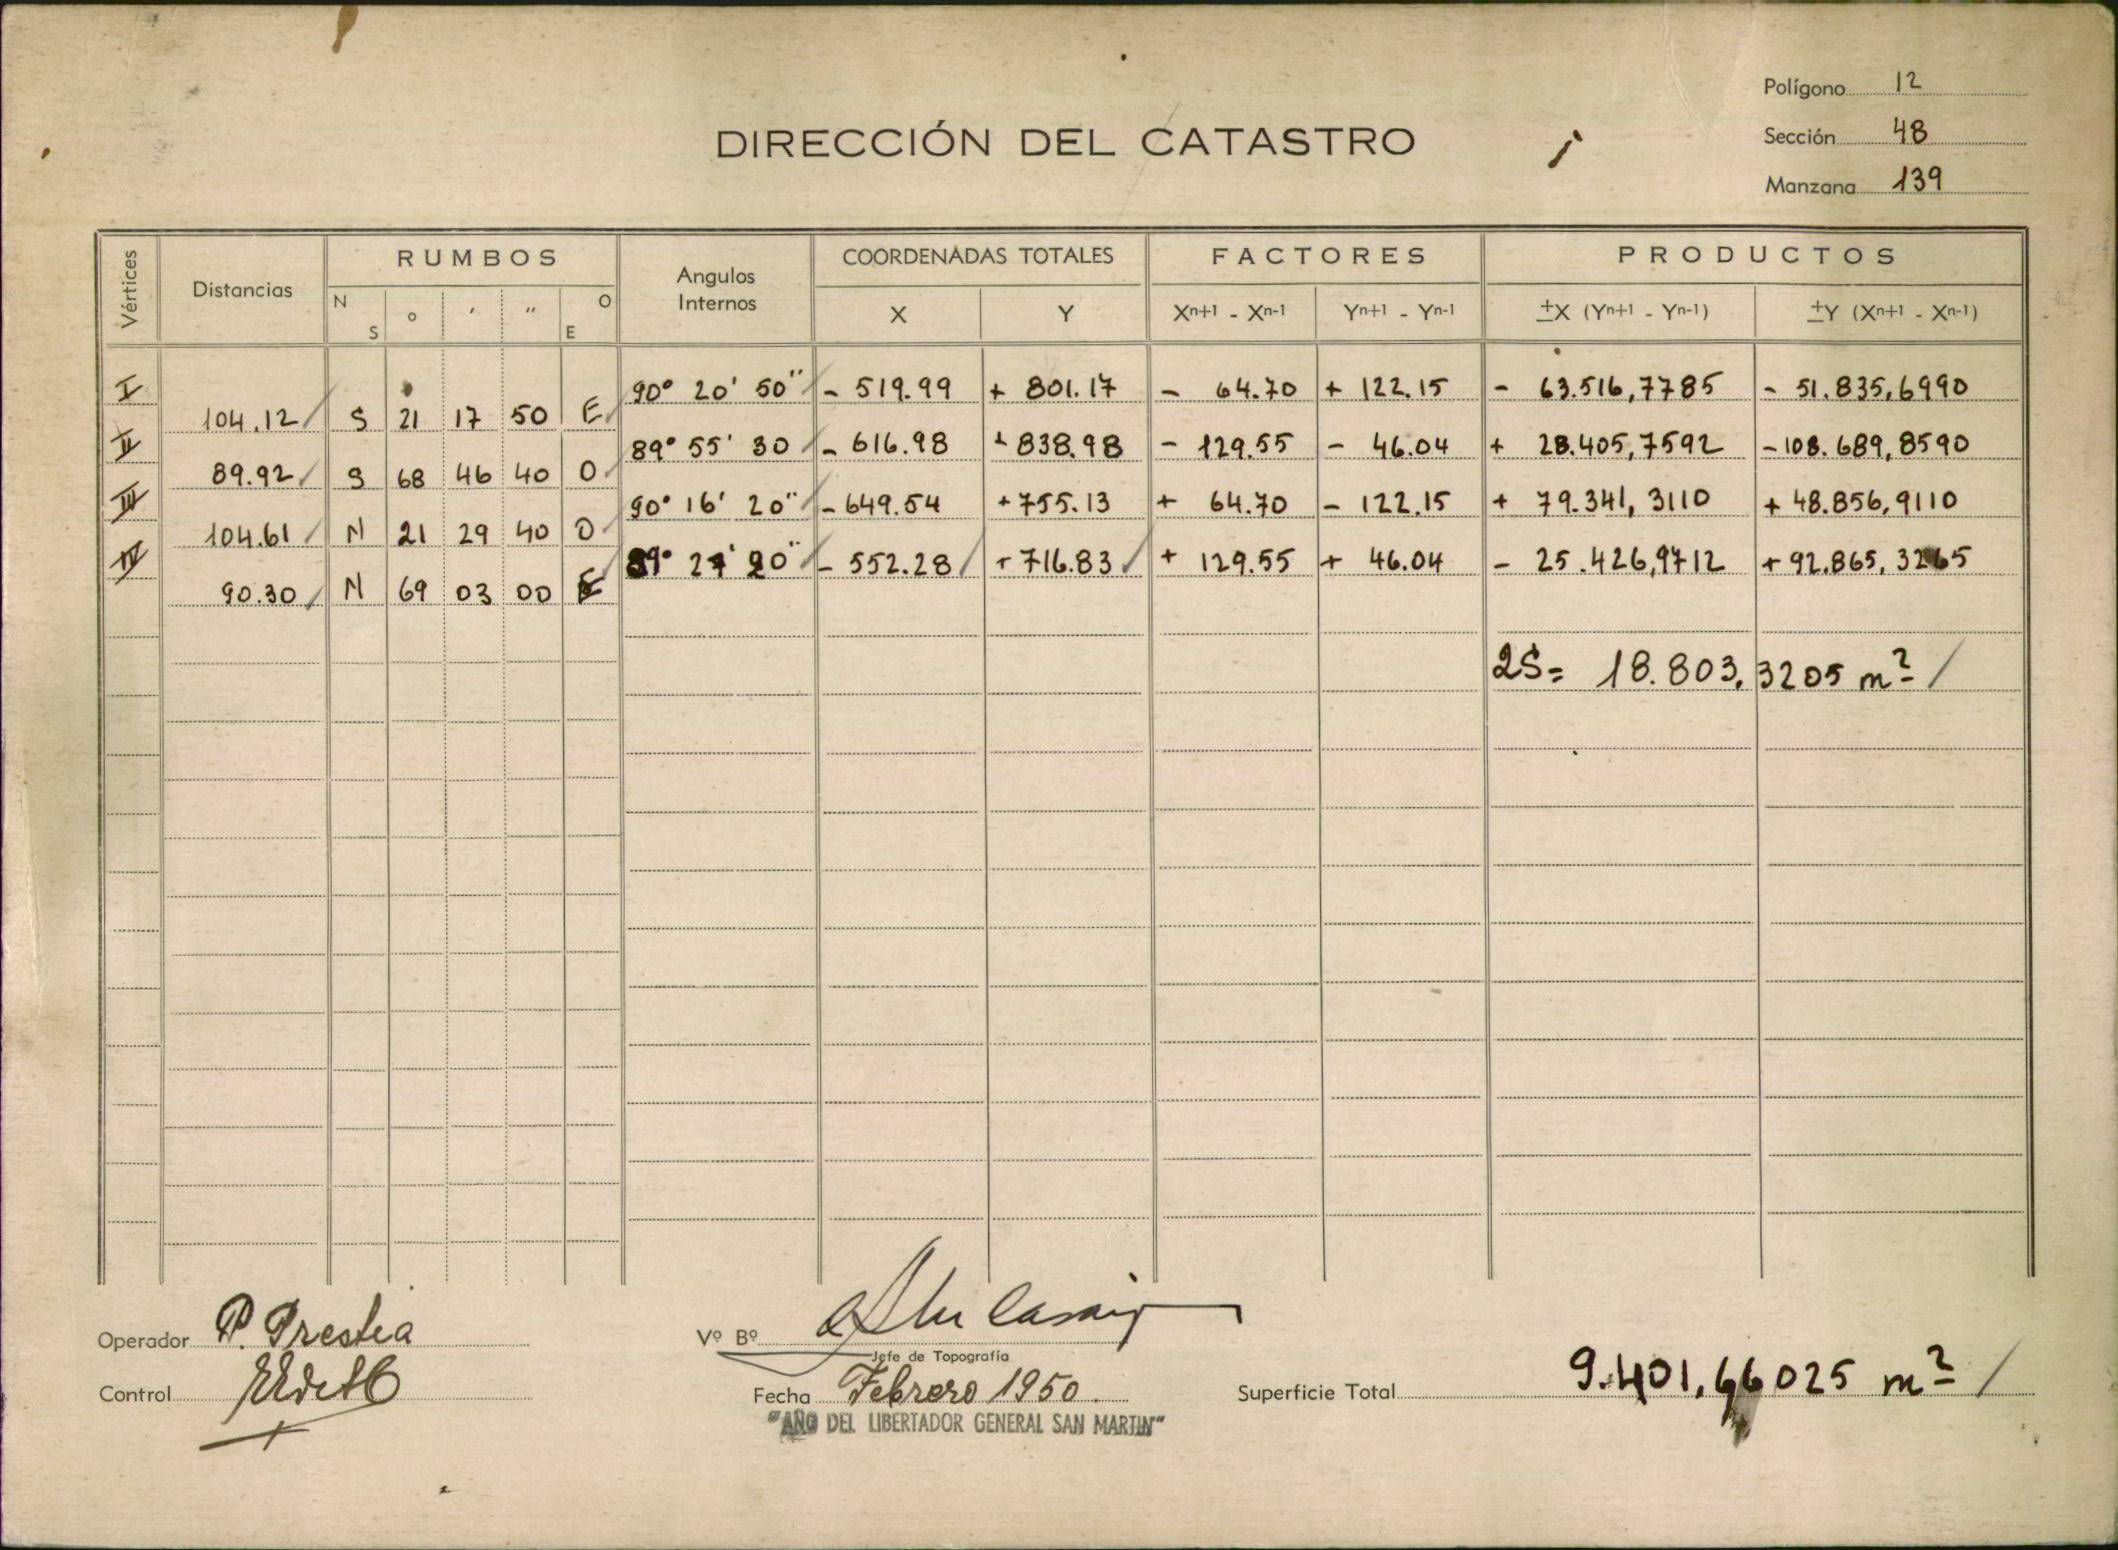 Polígono 12
DIRECCIÓN DEL CATASTRO
Sección 48
Manzana 139
Vértices Distancias RUMBOS Angulos Internos COORDENADAS TOTALES FACTORES PRODUCTOS
N S ° ' '' O E X Y Xn+1 - Xn-1 Yn+1 - Yn-1 ±X (Yn+1 - Yn-1) ±Y (Xn+1 - Xn-1)
I 90° 20' 50'' - 519.99 + 801.17 - 64.70 + 122.15 - 63.516,7785 - 51.835,6990
104.12 S 21 17 50 E
II 89° 55' 30 - 616.98 + 838.98 - 129.55 - 46.04 + 28.405,7592 - 108.689,8590
89.92 S 68 46 40 O
III 90° 16' 20'' - 649.54 + 755.13 + 64.70 - 122.15 + 79.341,3110 + 48.856,9110
104.61 N 21 29 40 O
IV 89° 27' 20'' - 552.28 + 716.83 + 129.55 + 46.04 - 25.426,9712 + 92.865,3265
90.30 N 69 03 00 E
2S= 18.803,3205 m²
Operador P. Prestia
Vº Bº
Jefe de Topografía
Control
Fecha Febrero 1950.
Superficie Total 9.401,66025 m²
"AÑO DEL LIBERTADOR GENERAL SAN MARTIN"